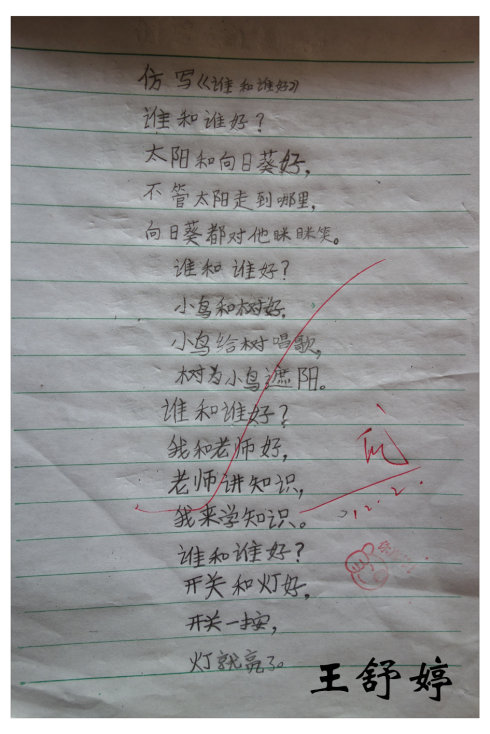 仿写《谁和谁好》
谁和谁好？
太阳和向日葵好，
不管太阳走到哪里，
向日葵都对他眯眯笑。
谁和谁好？
小鸟和树好，
小鸟给树唱歌，
树为小鸟遮阳。
谁和谁好？
我和老师好，
老师讲知识，
我来学知识。
谁和谁好？
开关和灯好，
开关一按，
灯就亮了。
王舒婷